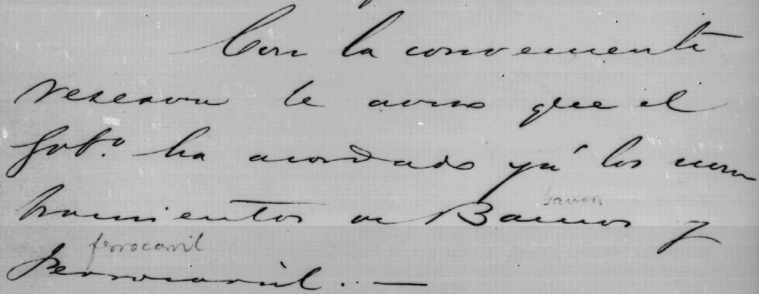 Con la conveniente
reserva te aviso que el
Gobº. ha acordado ya los nom
bramientos de Bancos y
ferrocarril
ferrocarril. —